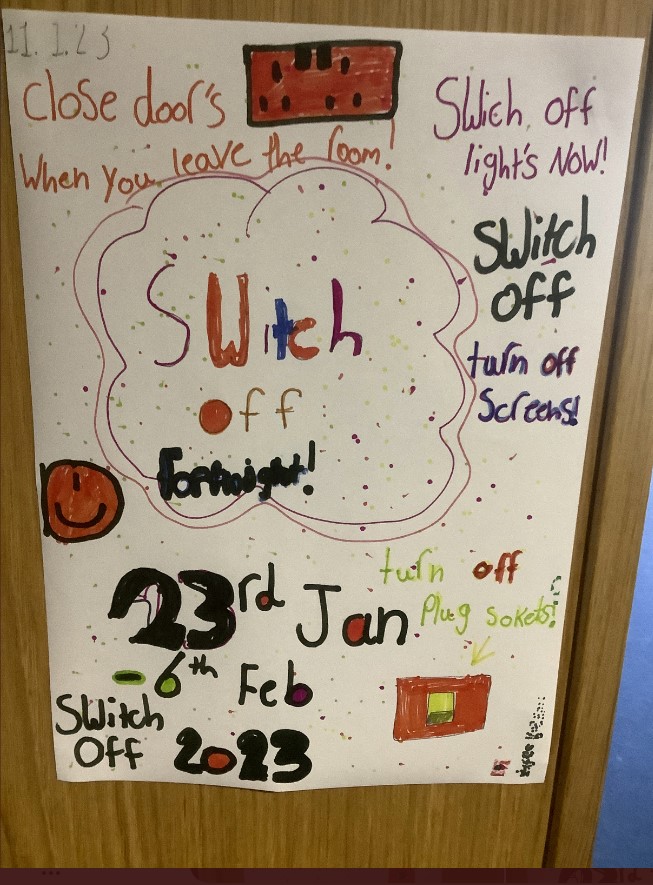 11.1.23
close door's
When you leave the room!
Swich off
light's NOW!
Switch
off
turn off
Screens!
Switch
off
Fortnight!
turn off
Plug sokets!
23rd Jan
- 6th Feb
2023
Switch
Off